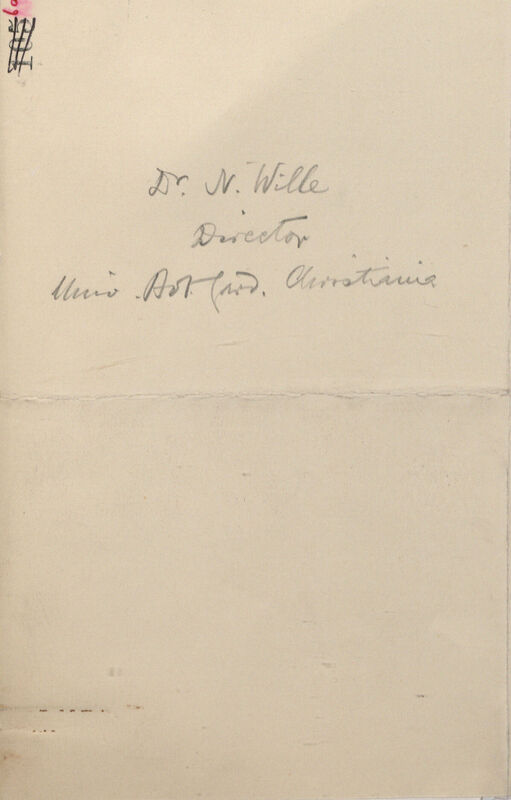 Dr. N. Wille
Director
Univ. Bot. Gard. Christiania